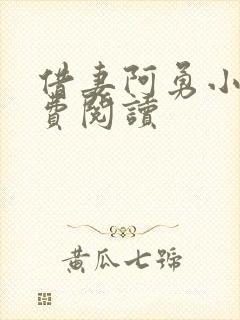 借妻阿勇小
費閱讀
黃瓜七號